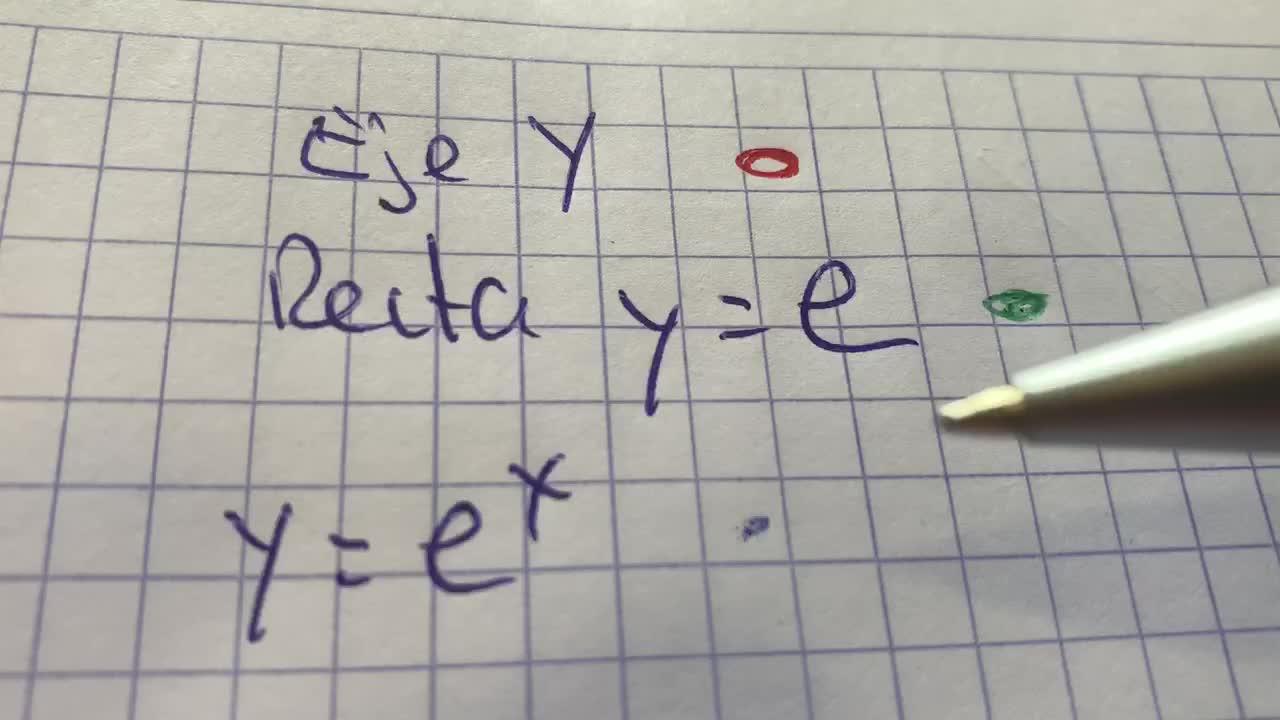 Eje Y
Recta y = e
y = e^x